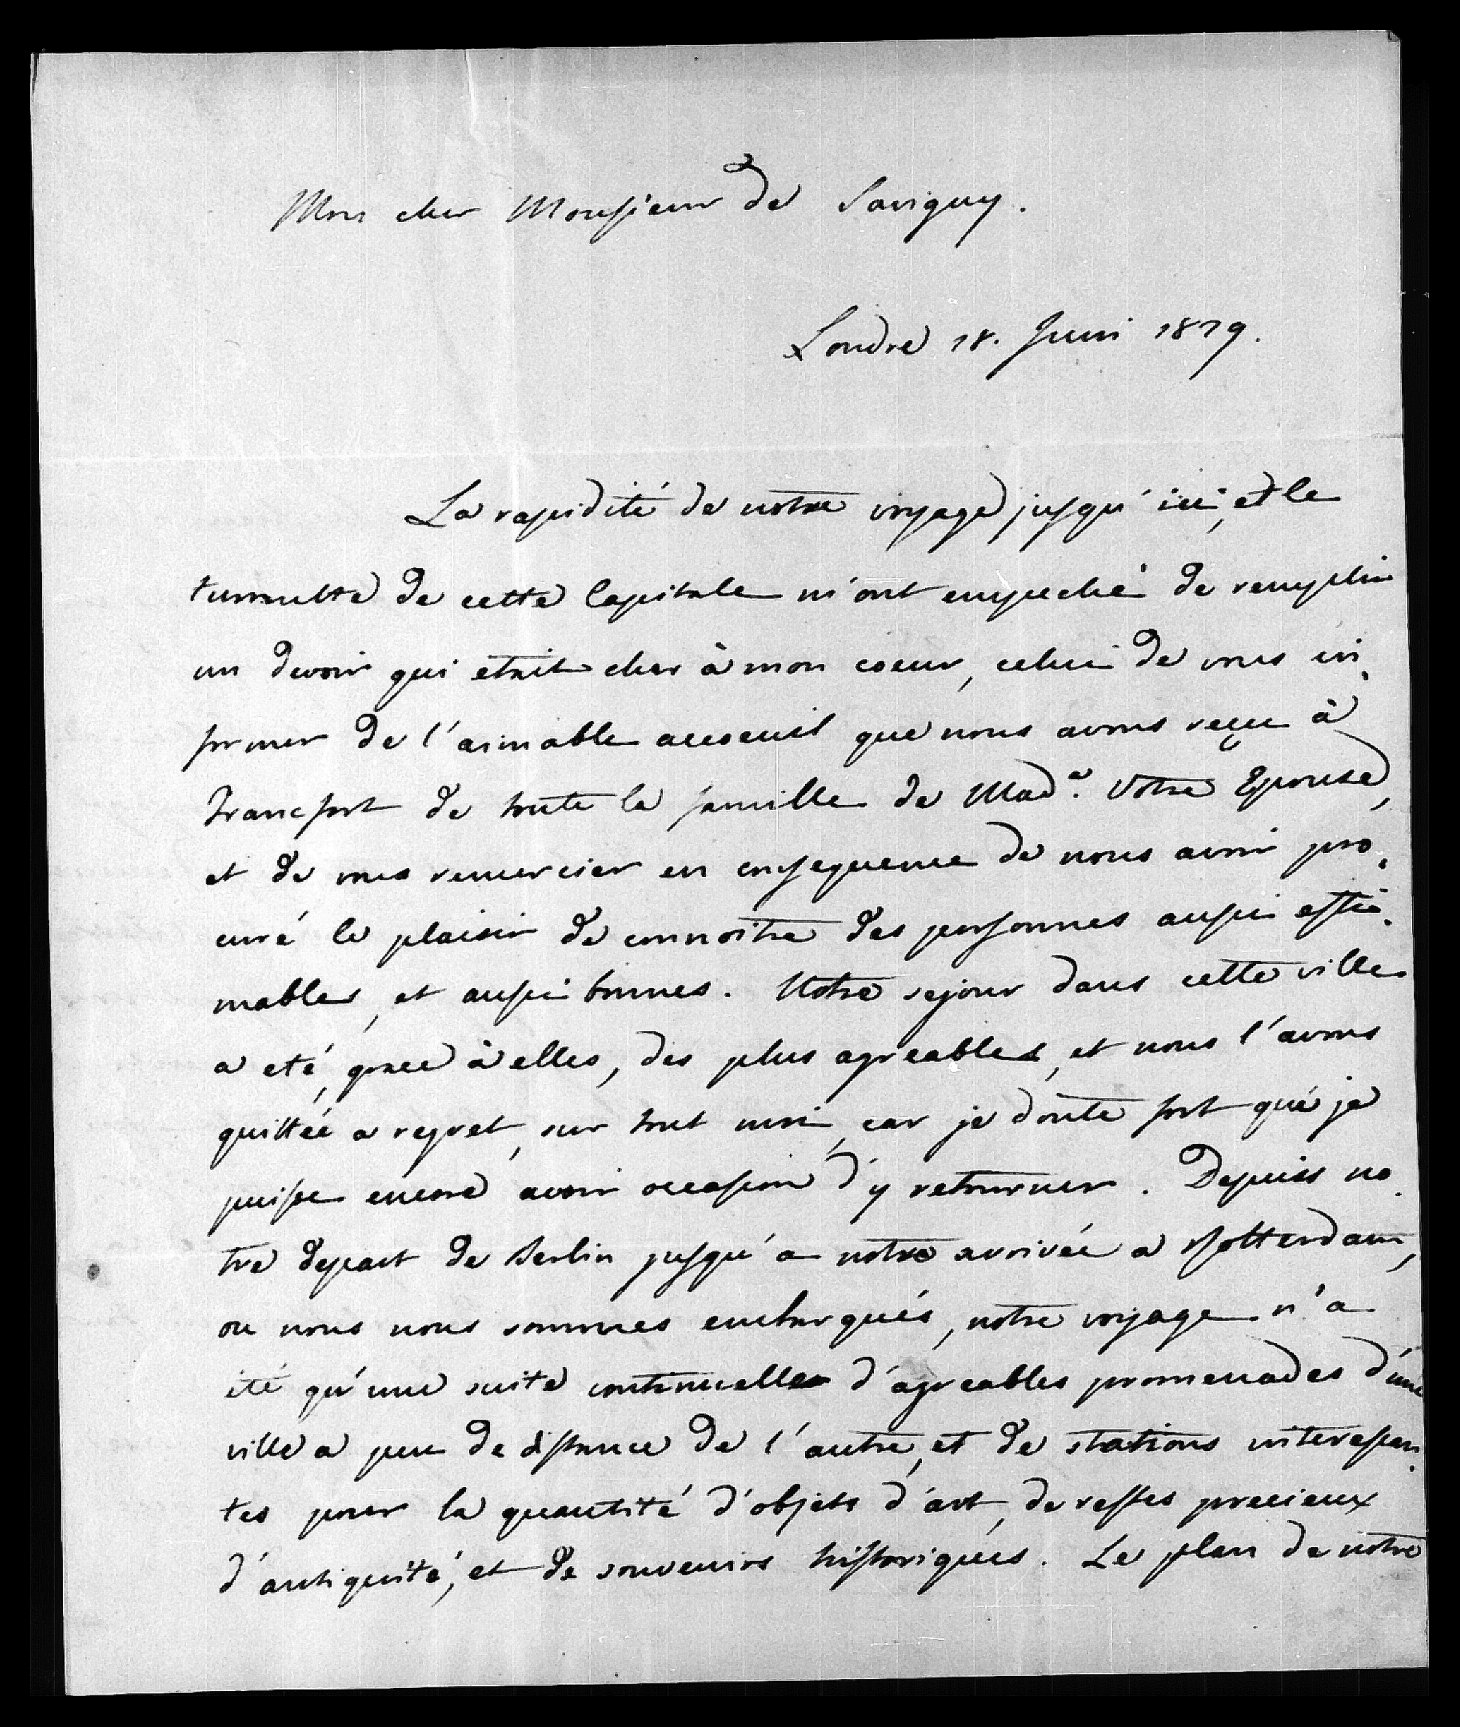 Mon cher Monsieur de Savigny.
Londre 18. Juin 1829.
La rapidité de notre voyage jusqu'ici, et le
tumulte de cette Capitale m'ont empeché de remplir
un devoir qui etait cher à mon coeur, celui de vous in-
former de l'aimable acceuil que nous avons reçu à
Francfort de toute la famille de Mad.e Votre Epouse,
et de vous remercier en consequence de nous avoir pro-
curé le plaisir de connoitre des personnes aussi esti-
mables, et aussi bonnes. Notre sejour dans cette ville
a eté, grace à elles, des plus agreables, et nous l'avons
quittée a regret, sur tout moi, car je doute fort que je
puisse encore avoir occasion d'y retourner. Depuis no-
tre depart de Berlin jusqu'a notre arrivée a Rotterdam,
ou nous nous sommes embarqués, notre voyage n'a
eté qu'une suite continuelle d'agreables promenades d'une
ville a peu de distance de l'autre, et de stations interessan-
tes pour la quantité d'objets d'art, de restes precieux
d'antiquité, et de souvenirs historiques. Le plan de notre